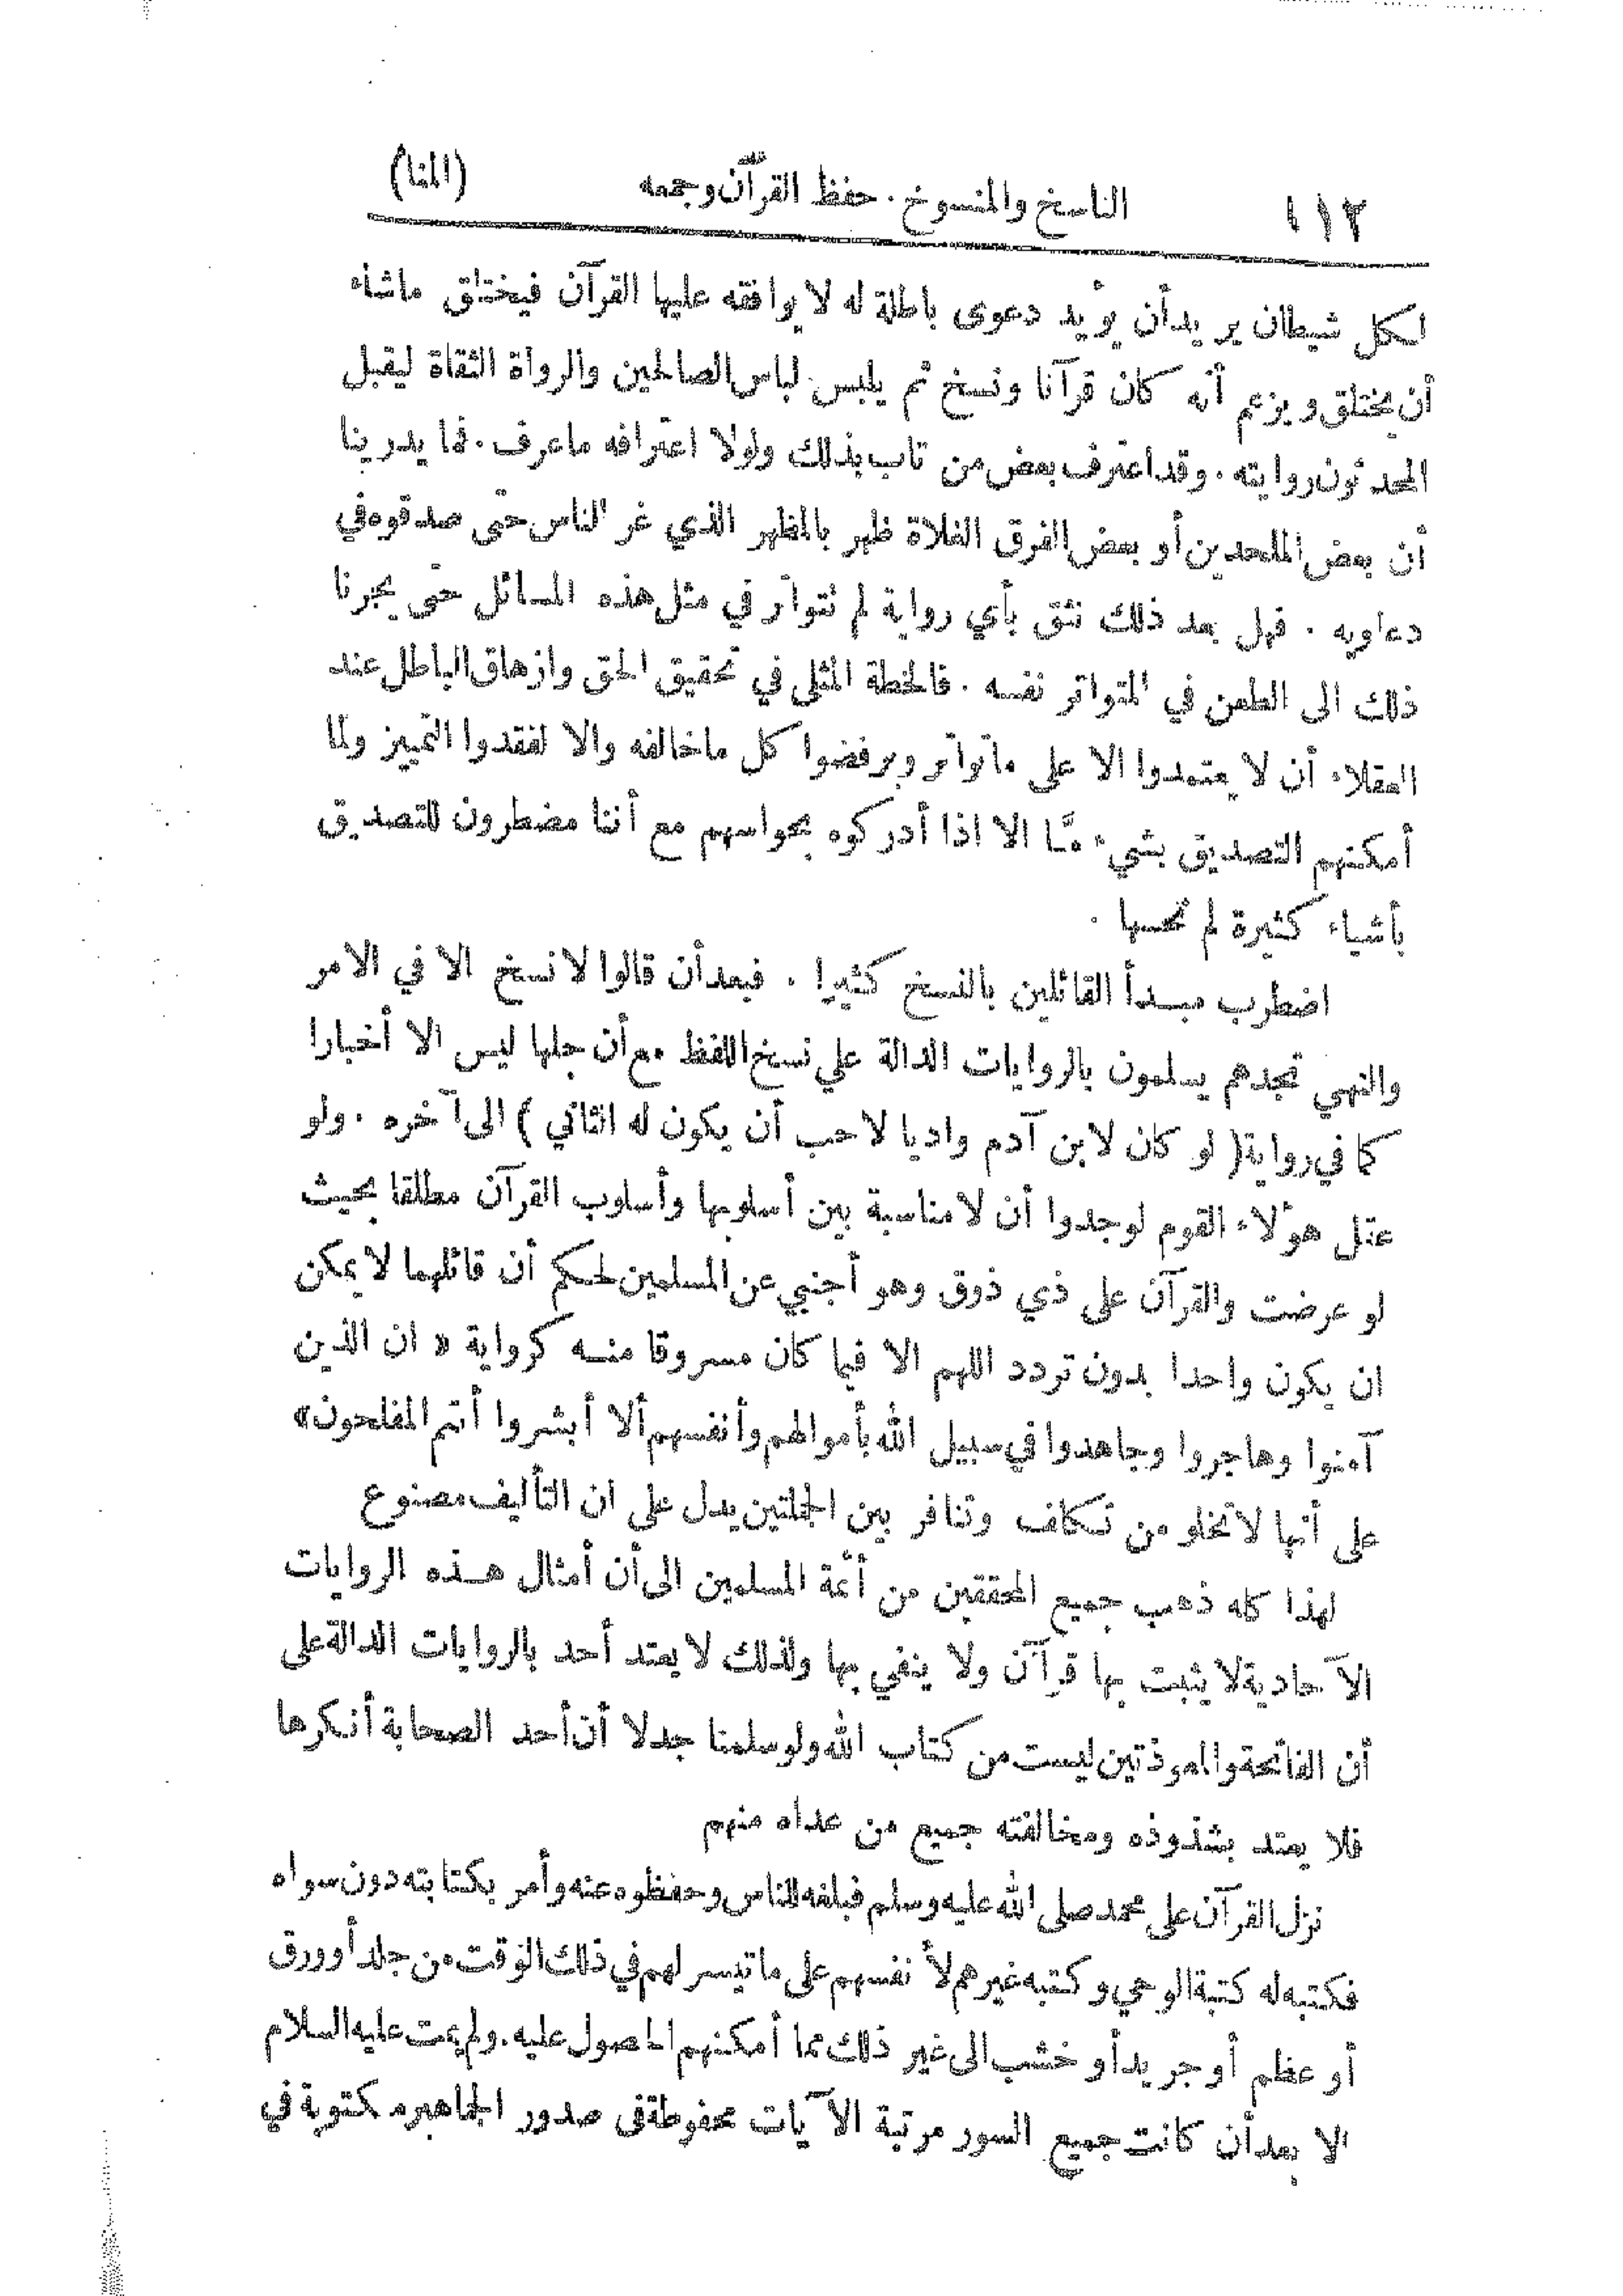 ٦١٢ الناسخ والمنسوخ . حفظ القرآن وجمعه (المنا)
لكل شيطان يريد أن يؤيد دعوى باطلة له لا يوافقه عليها القرآن فيختلق ماشاء
أن يختلق ويزعم أنه كان قرآنا ونسخ ثم يلبس لباس الصالحين والرواة الثقاة ليقبل
المحدثون روايته . وقد اعترف بعض من تاب بذلك ولولا اعترافه ماعرف . فما يدرينا
أن بعض الملحدين أو بعض الفرق الغلاة ظهر بالمظهر الذي غر الناس حتى صدقوه في
دعاويه . فهل بعد ذلك نثق بأي رواية لم تتواتر في مثل هذه المسائل حتى يجرنا
ذلك الى الطعن في المتواتر نفسه . فالخطة المثلى في تحقيق الحق وازهاق الباطل عند
العقلاء أن لا يعتمدوا الا على ماتواتر ويرفضوا كل ماخالفه والا لفقدوا التمييز ولما
أمكنهم التصديق بشيء مّا الا اذا أدركوه بحواسهم مع أننا مضطرون للتصديق
بأشياء كثيرة لم نحسها .
اضطرب مبدأ القائلين بالنسخ كثيرا . فبعد أن قالوا لا نسخ الا في الامر
والنهي تجدهم يسلمون بالروايات الدالة على نسخ اللفظ مع أن جلها ليس الا أخبارا
كما في رواية ( لو كان لابن آدم واديا لاحب أن يكون له الثاني ) الى آخره . ولو
عقل هؤلاء القوم لوجدوا أن لا مناسبة بين أسلوبها وأسلوب القرآن مطلقا بحيث
لو عرضت والقرآن على ذي ذوق وهو أجنبي عن المسلمين لحكم أن قائلهما لا يمكن
ان يكون واحدا بدون تردد اللهم الا فيما كان مسروقا منه كرواية « ان الذين
آمنوا وهاجروا وجاهدوا في سبيل الله بأموالهم وأنفسهم ألا أبشروا أنتم المفلحون»
على أنها لا تخلو من تكلف وتنافر بين الجملتين يدل على ان التأليف مصنوع
لهذا كله ذهب جميع المحققين من أئمة المسلمين الى أن أمثال هذه الروايات
الآحادية لا يثبت بها قرآن ولا ينفي بها ولذلك لا يعتد أحد بالروايات الدالة على
أن الفاتحة والمعوذتين ليست من كتاب الله ولو سلمنا جدلا أن أحد الصحابة أنكرها
فلا يعتد بشذوذه ومخالفته جميع من عداه منهم
نزل القرآن على محمد صلى الله عليه وسلم فبلغه للناس وحفظوه عنه وأمر بكتابته دون سواه
فكتبه له كتبة الوحي وكتبه غيرهم لأنفسهم على ماتيسر لهم في ذلك الوقت من جلد أو ورق
أو عظم أو جريد أو خشب الى غير ذلك مما أمكنهم الحصول عليه . ولم يمت عليه السلام
الا بعد أن كانت جميع السور مرتبة الآيات محفوظة في صدور الجماهير مكتوبة في